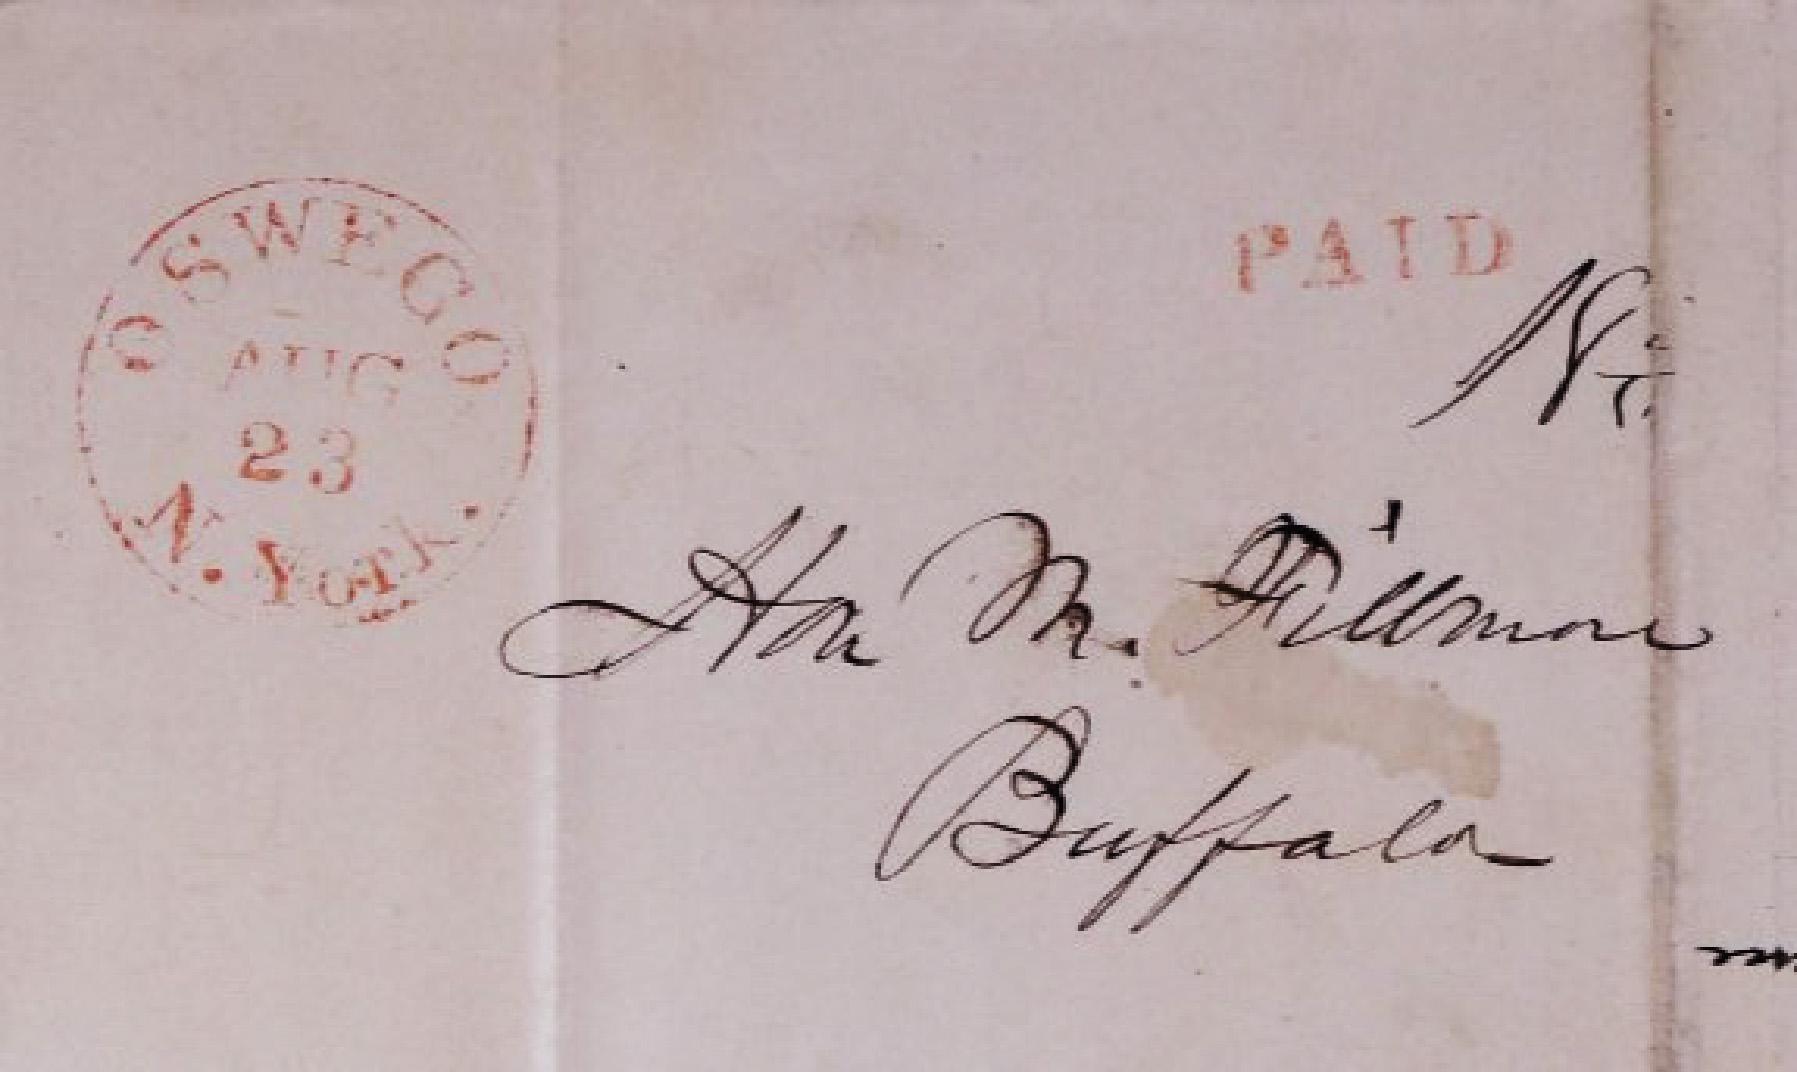 OSWEGO
AUG
23
N. York.
PAID
Hon M. Fillmore
Buffalo